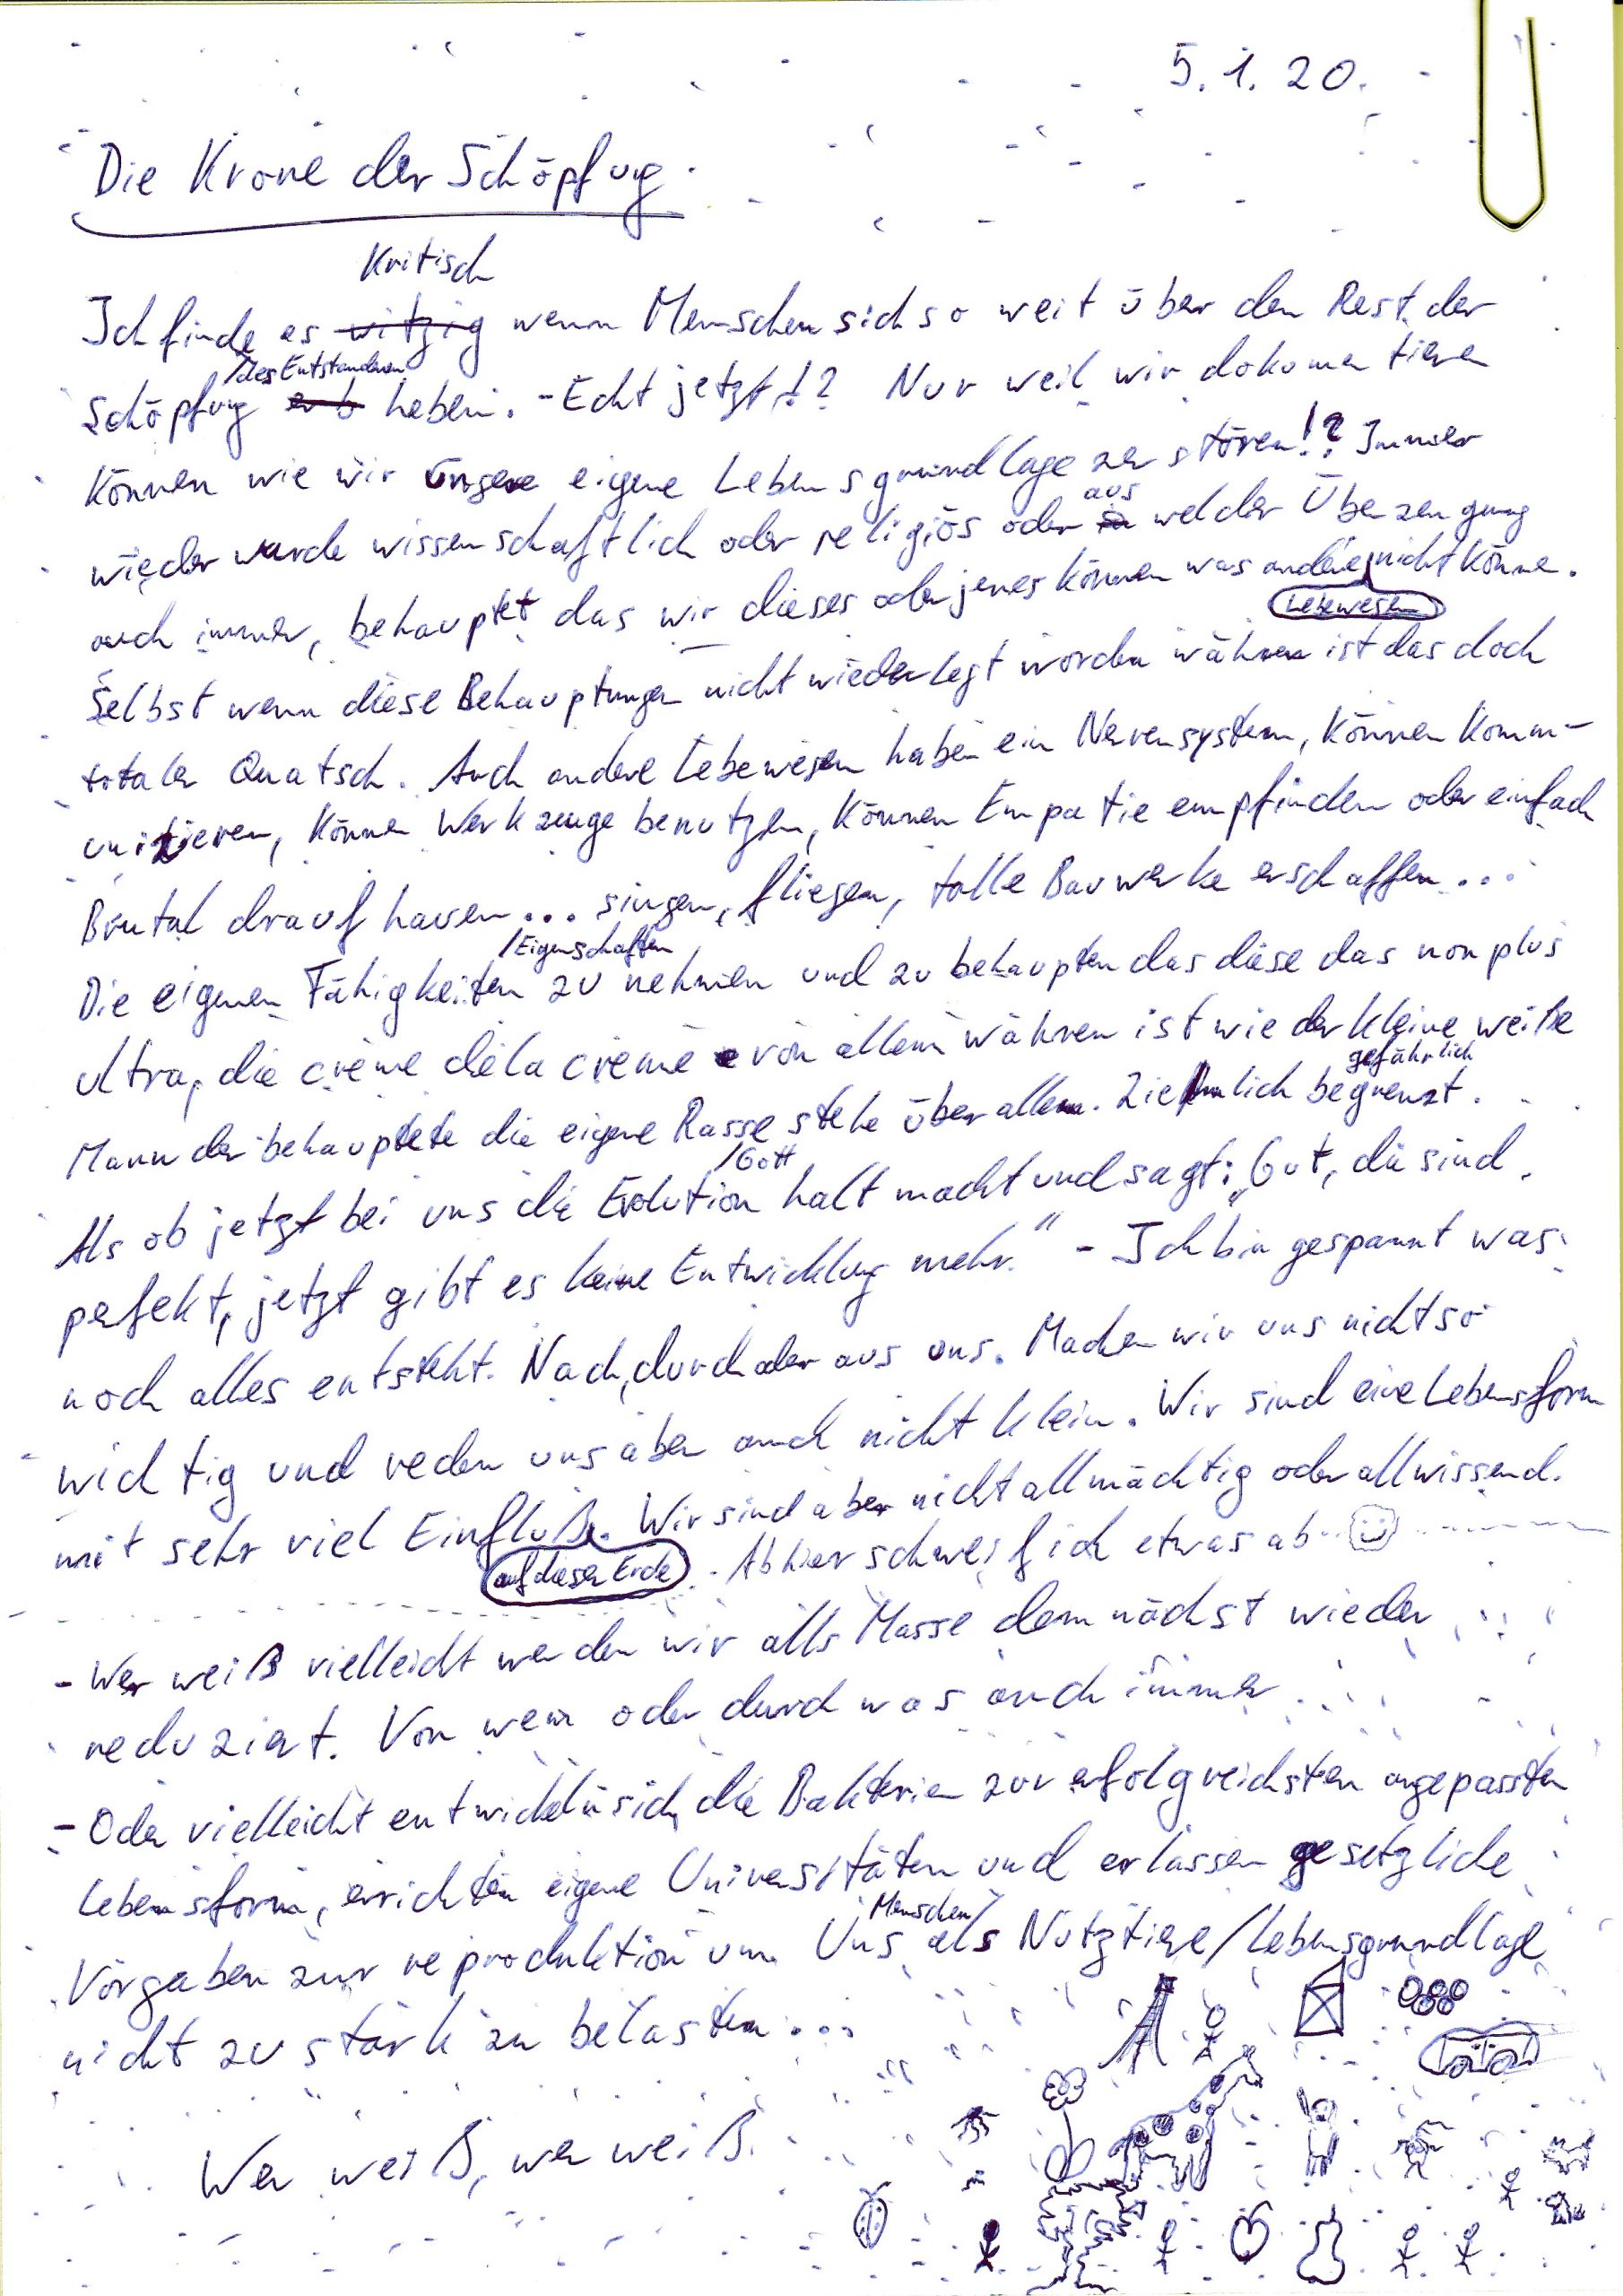 5.1.20.
Die Krone der Schöpfung.
Kritisch
Ich finde es witzig wenn Menschen sich so weit über den Rest der
/des Entstandenen
Schöpfung erb heben. - Echt jetzt!? Nur weil wir dokumentieren
können wie wir unsere eigene Lebensgrundlage zerstören!? Immer
aus
wieder wurde wissenschaftlich oder religiös oder in welcher Überzeugung
auch immer, behauptet das wir dieses oder jenes können was andere nicht könne.
Lebewesen
Selbst wenn diese Behauptungen nicht wiederlegt worden währen ist das doch
totaler Quatsch. Auch andere Lebewesen haben ein Nervensystem, können komm-
unizieren, können Werkzeuge benutzen, können Empatie empfinden oder einfach
Brutal drauf hauen... singen, fliegen, tolle Bauwerke erschaffen...
/Eigenschaften
Die eigenen Fähigkeiten zu nehmen und zu behaupten das diese das non plus
ultra, die crème dela crème von allem währen ist wie der kleine weiße
gefährlich
Mann der behauptete die eigene Rasse stehe über allem. Ziehmlich begrenzt...
/Gott
Als ob jetzt bei uns die Evolution halt macht und sagt: „Gut, die sind
perfekt, jetzt gibt es keine Entwicklug mehr." - Ich bin gespannt was
noch alles entsteht. Nach, durch oder aus uns. Machen wir uns nicht so
wichtig und reden uns aber auch nicht klein. Wir sind eine Lebensform
mit sehr viel Einfluß. Wir sind aber nicht allmächtig oder allwissend.
auf dieser Erde
Ab hier schweif ich etwas ab
- Wer weiß vielleicht werden wir alls Masse demnächst wieder
reduziert. Von wem oder durch was auch immer...
- Oder vielleicht entwickeln sich die Bakterien zur erfolgreichsten angepassten
Lebensform, errichten eigene Universitäten und erlassen gesetzliche
Menschen/
Vorgaben zur reproduktion um Uns als Nutztiere/Lebensgrundlage
nicht zu stark zu belasten...
Wer weiß, wer weiß.